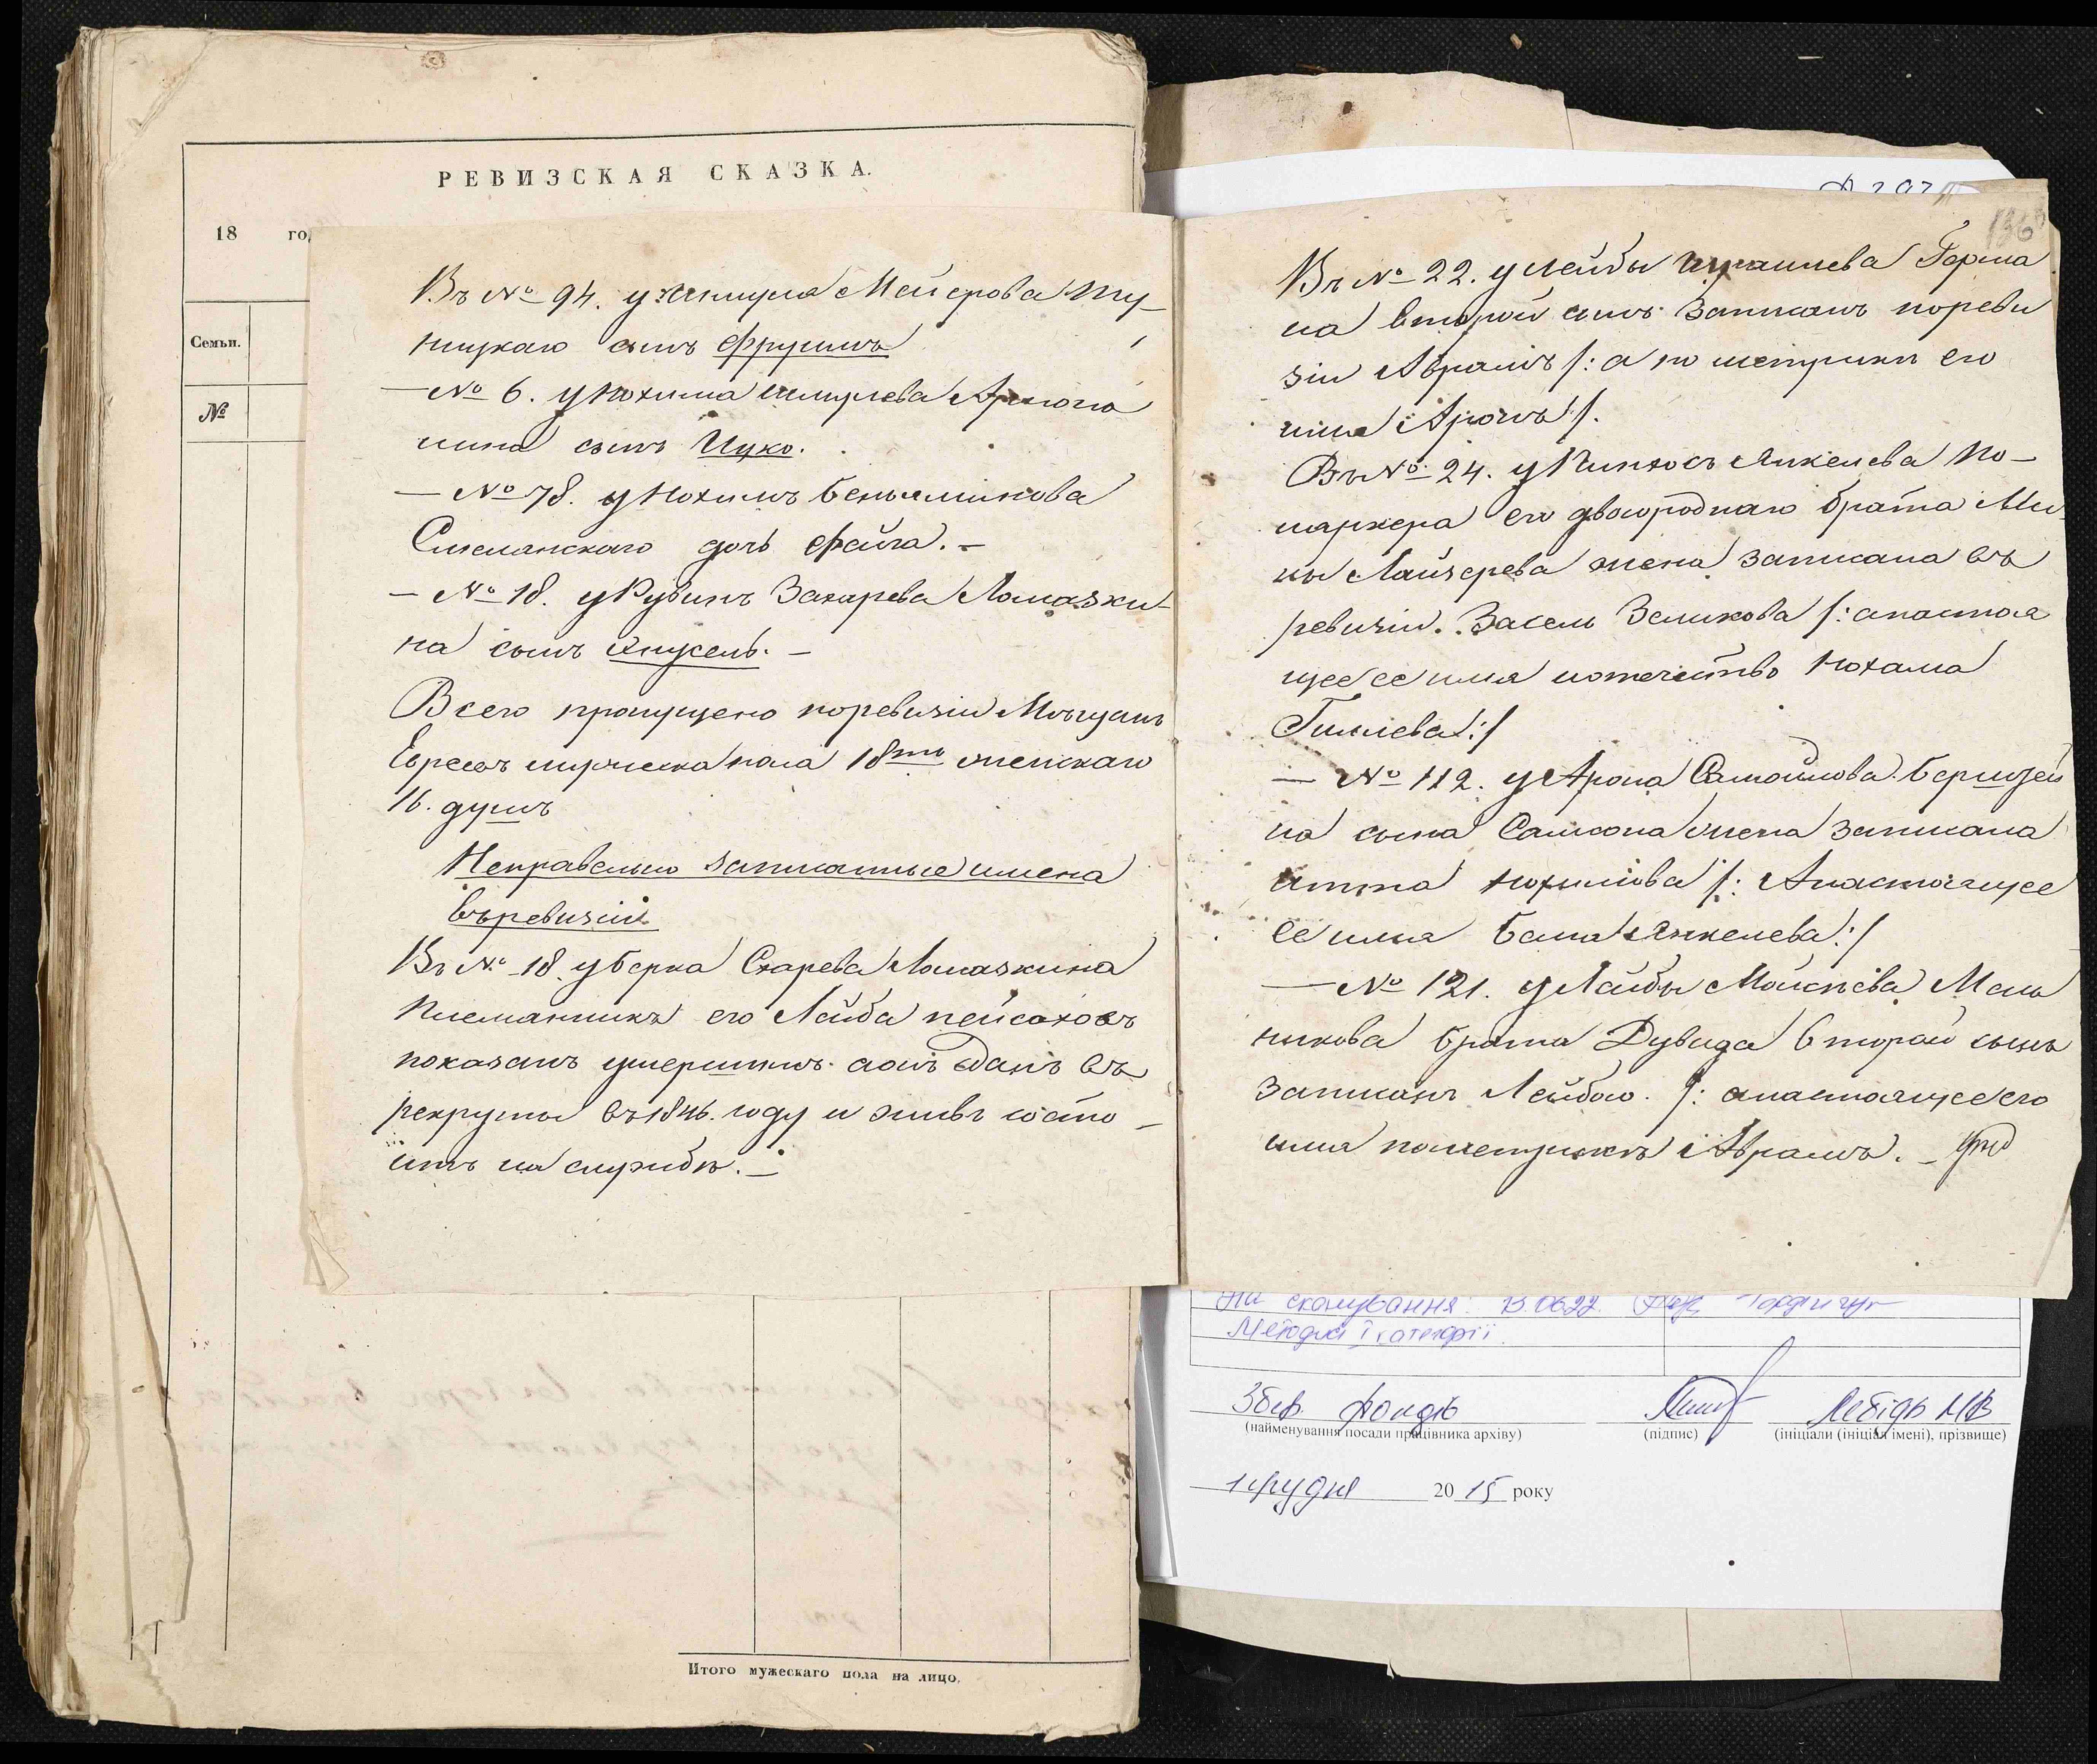 РЕВИЗСКАЯ СКАЗКА.
18 го
Семьи.
№
Въ № 94. у Шмуля Мейерова Ту-
ницкаго сынъ Фруимъ
— № 6. у Нохима Шмулева
сынъ Ицко.
— № 78. у Нохимъ Беньяминова
Смелянскаго дочь Фейга. —
— № 18. у Рувинъ Захарева Ломазки-
на сынъ Янкель. —
Всего пропущено поревизіи
Евреевъ мужеска пола 18ть женскаго
16. душъ
Неправельно записанные имена
въревизіи
Въ № 18 у Берка Скарева Ломазкина
Племянникъ его Лейба пейсаховъ
показанъ умершимъ аонъ сданъ въ
рекруты въ 1846. году и живъ состо-
итъ на службѣ. —
136
Въ № 22. у Лейбы Израилева Герма
на второй сынъ записанъ пореви
зіи Абрамъ /: а по метрики его
имя Аронъ :/.
Въ № 24. у Пинхосъ Янкелева По-
маркера его двоюроднаго брата Ми
ны Лайзерева жена записана въ
ревизіи. Засель Зеликова /: анастоя
щее ее имя иотечество Нохама
Гиллева :/
— № 112. у Арона Самойлова Берштей
на сына Самсона жена записана
Итта Нохимова /: Анастоящее
ее имя Бася Янкелева :/
— № 121. у Лейбы Моисѣева Мель
никова брата Дувида второй сынъ
записанъ Лейбою. /: анастоящее его
имя пометрикѣ Абрамъ. —
сканування: 13.06.22.
Методист І категорії
Зав. фондів
Лебідь МВ
(найменування посади працівника архіву) (підпис) (ініціали (ініціал імені), прізвище)
1 грудня 20 15 року
Итого мужескаго пола на лицо.